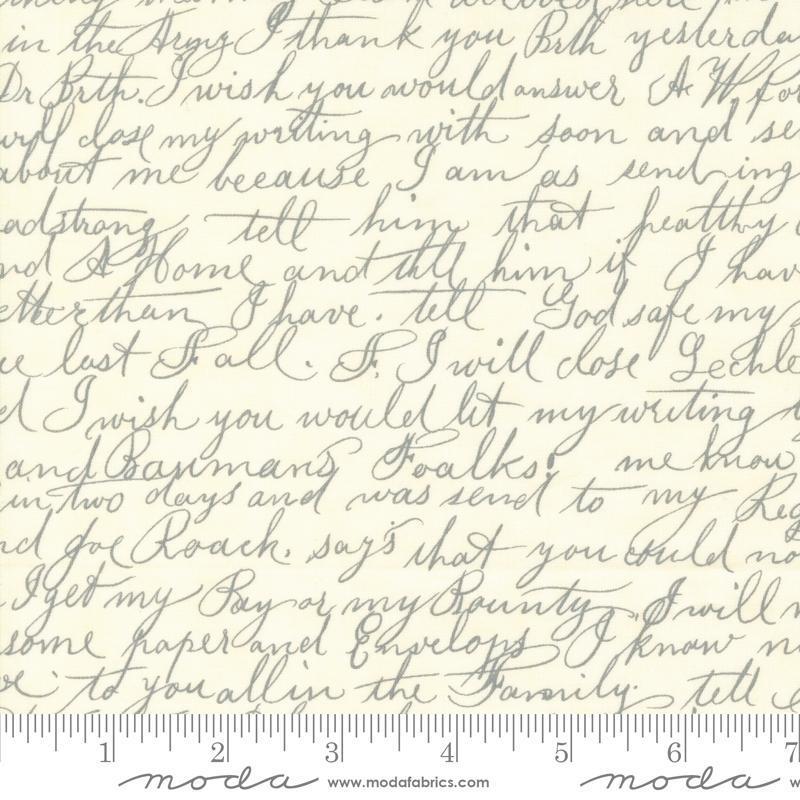 in the Army I thank you Brth yesterda
Dr Brth. I wish you would answer A W. for
will close my writing with soon and se
about me because I am as sending
adstrong tell him that healthy
nd A Home and till him if I hav
etter than I have. tell God safe my
ue last Fall. F. I will close Lechle
d I wish you would let my writing
and Baumans Foalks! me know
in two days and was send to my Reg
nd Joe Roack. say's that you could no
I get my Pay or my Bounty, I will
some paper and Envelops I know n
to you all in the Family. tell
1 2 3 4 5 6 7
moda www.modafabrics.com moda w